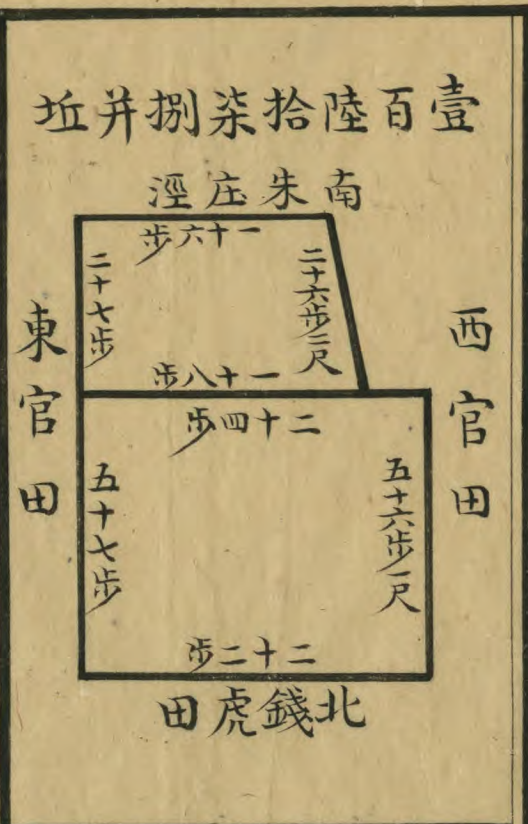 壹百陸拾柒捌并坵
南朱庄涇
一十六步
二十六步二尺
二十七步
一十八步
西官田
東官田
二十四步
五十六步一尺
五十七步
二十二步
北錢虎田